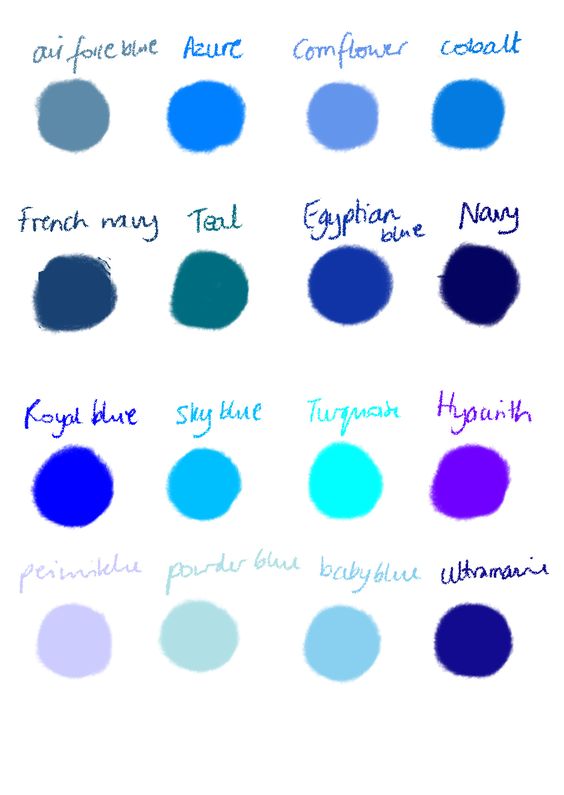 air force blue Azure Cornflower cobalt
French navy Teal Egyptian blue Navy
Royal blue Sky blue Turquoise Hyacinth
periwinkle powder blue baby blue ultramarine